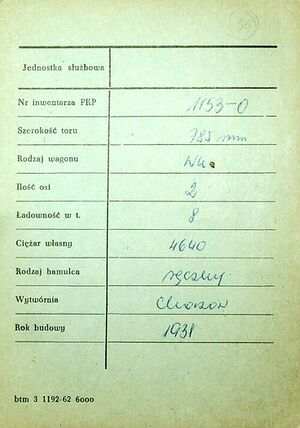 363
Jednostka służbowa
Nr inwentarza PKP 1153-0
Szerokość toru 785 mm
Rodzaj wagonu
Ilość osi 2
Ładowność w t. 8
Ciężar własny 4640
Rodzaj hamulca ręczny
Wytwórnia Chorzów
Rok budowy 1931
btm 3 1192-62 6000